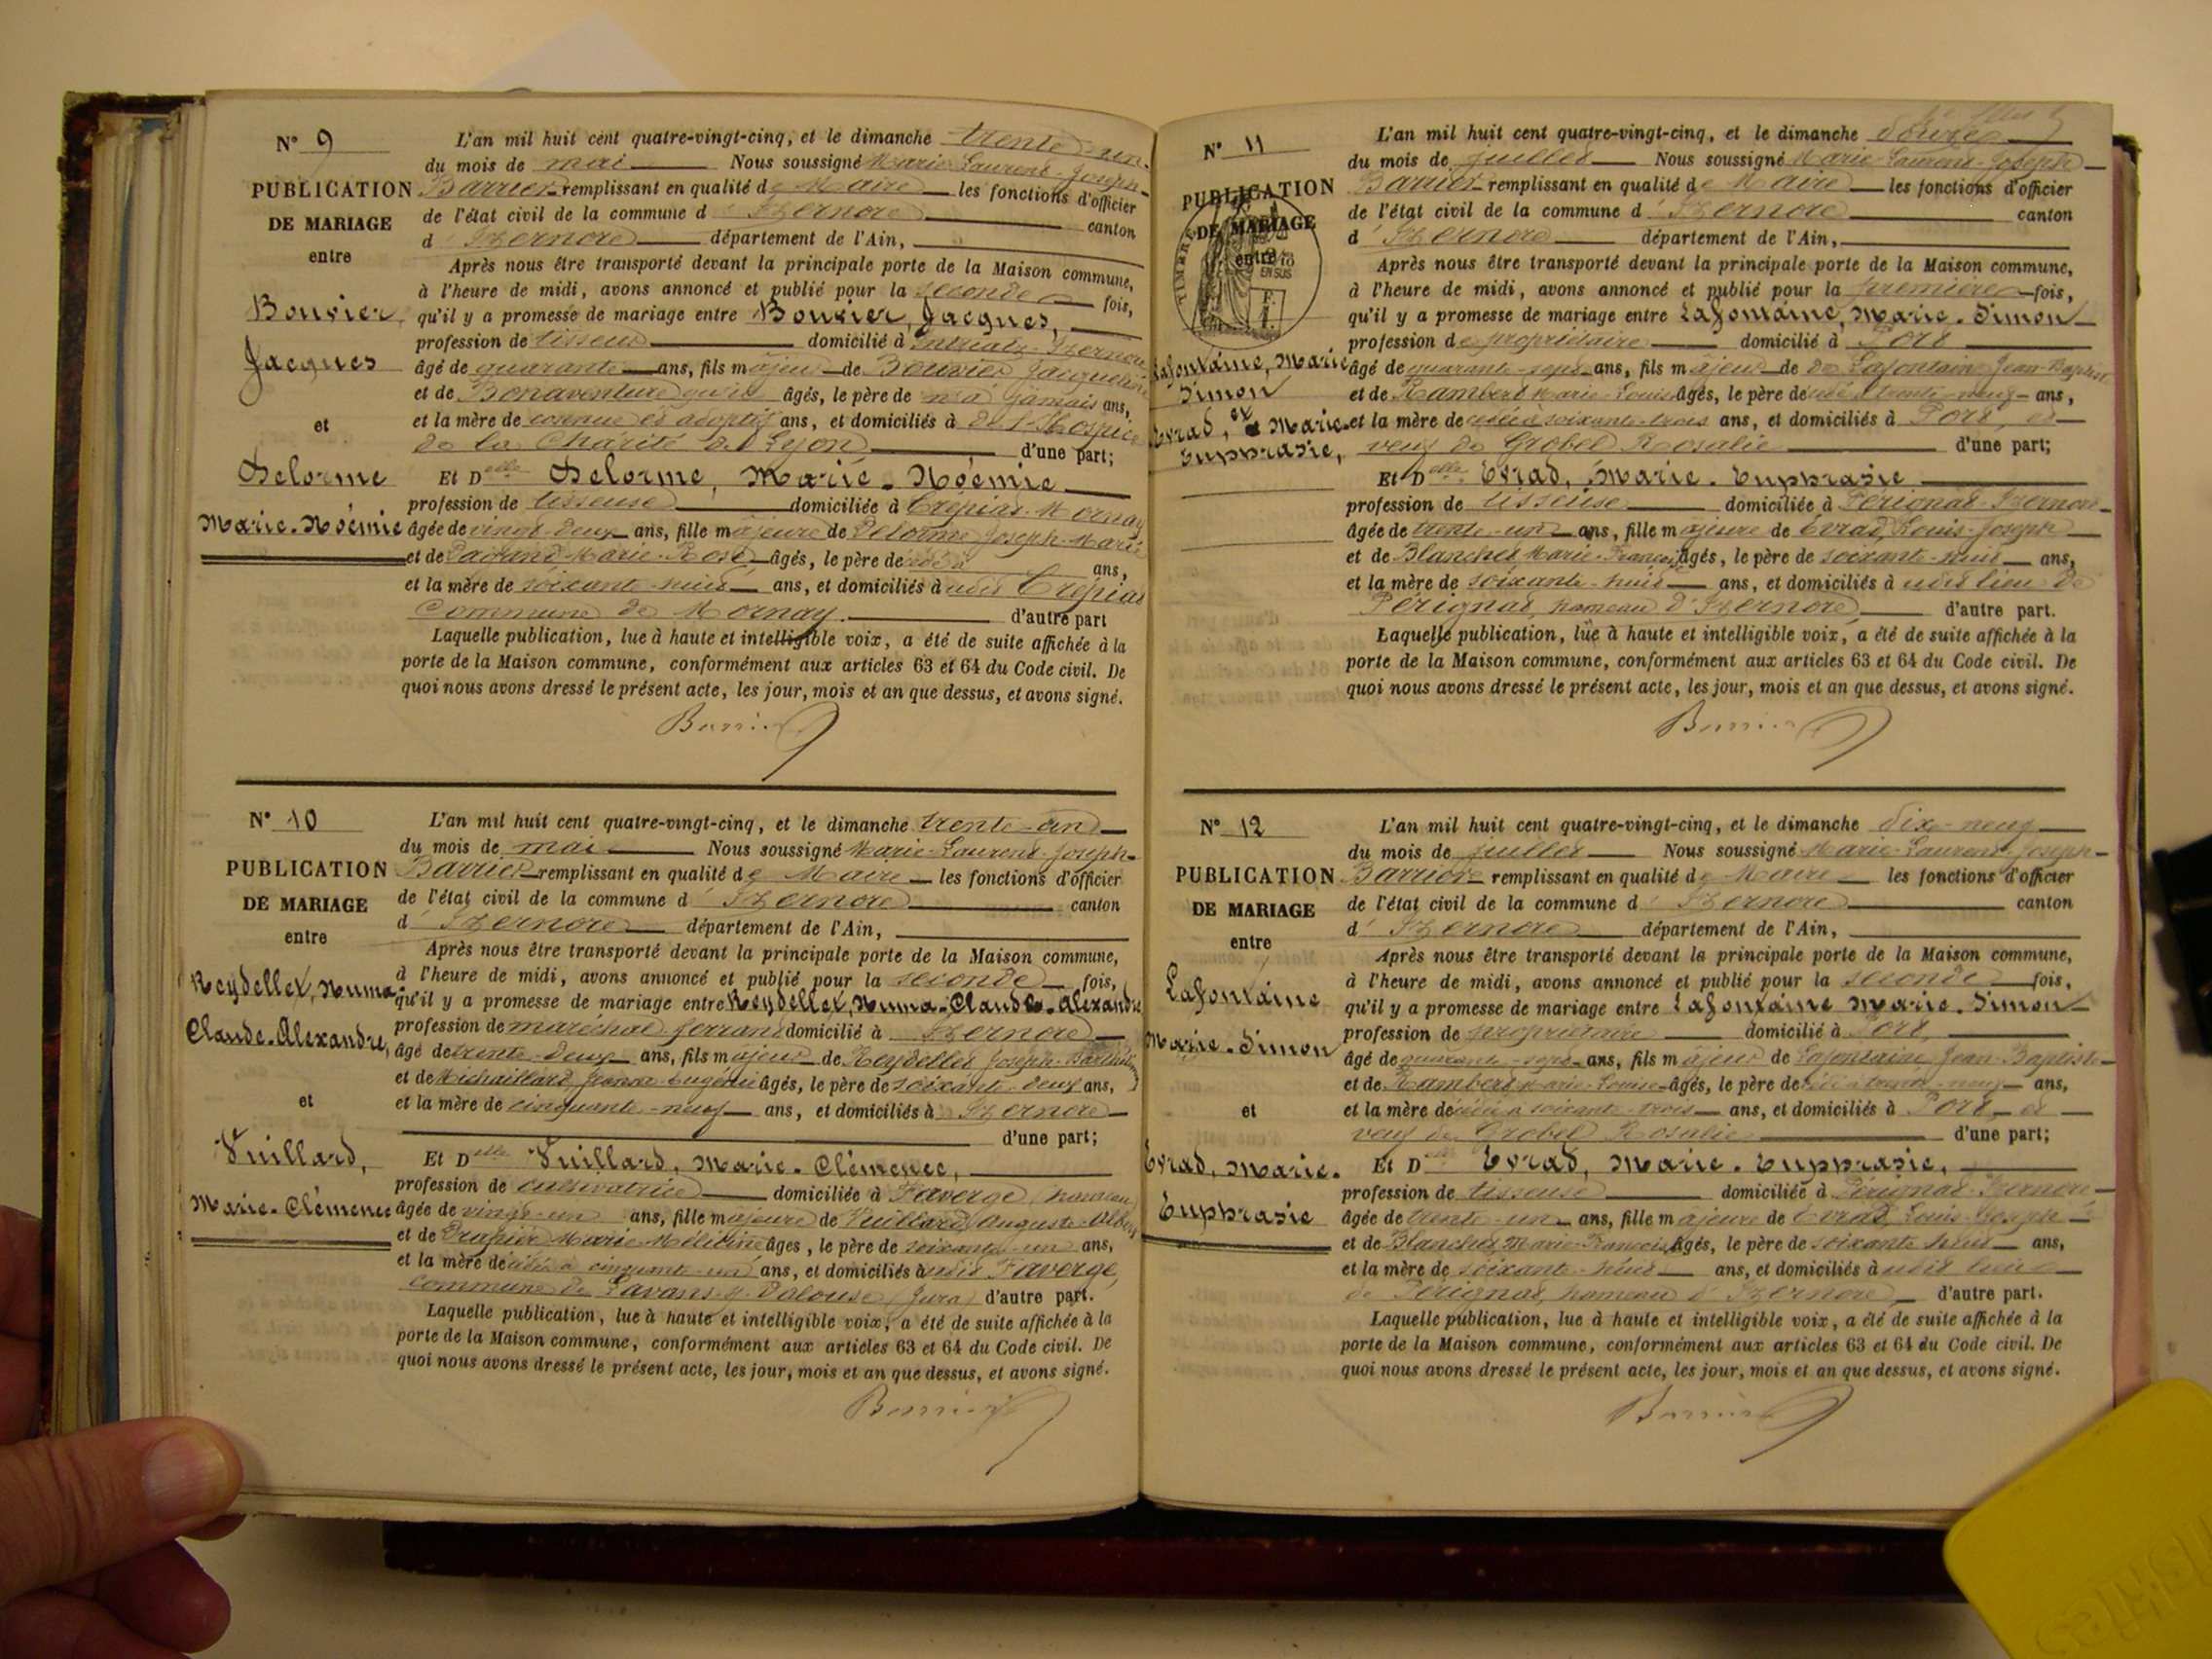 N° 9
PUBLICATION
DE MARIAGE
entre
Bouvier,
Jacques
et
Delorme
Marie-Noémie
L'an mil huit cent quatre-vingt-cinq, et le dimanche trente-un
du mois de mai Nous soussigné Marie-Laurent-Joseph-
Barrier remplissant en qualité de Maire les fonctions d'officier
de l'état civil de la commune d'Izernore canton
d'Izernore département de l'Ain,
Après nous être transporté devant la principale porte de la Maison commune,
à l'heure de midi, avons annoncé et publié pour la seconde fois,
qu'il y a promesse de mariage entre Bouvier, Jacques,
profession de tisseur domicilié à Intriat, Izernore
âgé de quarante ans, fils majeur de Bouvier Jacques
et de Bonaventure âgés, le père de n'a jamais ans,
et la mère de connue est adoptif ans, et domiciliés à de l'Hospice
de la Charité de Lyon d'une part;
Et Delle Delorme, Marie-Noémie
profession de tisseuse domiciliée à Crépiat-Mornay
âgée de vingt-deux ans, fille majeure de Delorme Joseph-Marie
et de Marie-Rose âgés, le père de ans,
et la mère de soixante-huit ans, et domiciliés à udit Crépiat
commune de Mornay. d'autre part
Laquelle publication, lue à haute et intelligible voix, a été de suite affichée à la
porte de la Maison commune, conformément aux articles 63 et 64 du Code civil. De
quoi nous avons dressé le présent acte, les jour, mois et an que dessus, et avons signé.
Barrier
N° 10
PUBLICATION
DE MARIAGE
entre
Reydellet, Numa-
Claude-Alexandre,
et
Vuillard,
Marie-Clémence
L'an mil huit cent quatre-vingt-cinq, et le dimanche trente-un
du mois de mai Nous soussigné Marie-Laurent-Joseph-
Barrier remplissant en qualité de Maire les fonctions d'officier
de l'état civil de la commune d'Izernore canton
d'Izernore département de l'Ain,
Après nous être transporté devant la principale porte de la Maison commune,
à l'heure de midi, avons annoncé et publié pour la seconde fois,
qu'il y a promesse de mariage entre Reydellet, Numa-Claude-Alexandre
profession de maréchal ferrant domicilié à Izernore
âgé de trente-deux ans, fils majeur de Reydellet Joseph-
et de Michaillard, Jeanne-Eugénie âgés, le père de soixante-deux ans,
et la mère de cinquante-neuf ans, et domiciliés à Izernore
d'une part;
Et Delle Vuillard, Marie-Clémence,
profession de cultivatrice domiciliée à Faverge, hameau
âgée de vingt-un ans, fille majeure de Vuillard, Auguste-
et de Marie âgés, le père de soixante-un ans,
et la mère décédée à cinquante-un ans, et domiciliés à udit Faverge,
commune de Lavans-s-Valouse (Jura) d'autre part.
Laquelle publication, lue à haute et intelligible voix, a été de suite affichée à la
porte de la Maison commune, conformément aux articles 63 et 64 du Code civil. De
quoi nous avons dressé le présent acte, les jour, mois et an que dessus, et avons signé.
Barrier
N° 11
PUBLICATION
DE MARIAGE
entre
Lafontaine, Marie
Simon
et
Evrad, Marie-
Euphrasie,
TIMBRE
EN SUS
L'an mil huit cent quatre-vingt-cinq, et le dimanche douze
du mois de juillet Nous soussigné Marie-Laurent-Joseph
Barrier remplissant en qualité de Maire les fonctions d'officier
de l'état civil de la commune d'Izernore canton
d'Izernore département de l'Ain,
Après nous être transporté devant la principale porte de la Maison commune,
à l'heure de midi, avons annoncé et publié pour la première fois,
qu'il y a promesse de mariage entre Lafontaine, Marie-Simon
profession de propriétaire domicilié à Port
âgé de quarante-sept ans, fils majeur de Lafontaine Jean-Baptiste
et de Rambert Marie-Louise âgés, le père décédé à trente-neuf ans,
et la mère décédée à soixante-trois ans, et domiciliés à Port, et
veuf de Grobel Rosalie d'une part;
Et Delle Evrad, Marie-Euphrasie
profession de tisseuse domiciliée à Pérignat-Izernore
âgée de trente-un ans, fille majeure de Evrad, Louis-Joseph
et de Blanchet Marie-Françoise âgés, le père de soixante-huit ans,
et la mère de soixante-huit ans, et domiciliés à udit lieu de
Pérignat, hameau d'Izernore d'autre part.
Laquelle publication, lue à haute et intelligible voix, a été de suite affichée à la
porte de la Maison commune, conformément aux articles 63 et 64 du Code civil. De
quoi nous avons dressé le présent acte, les jour, mois et an que dessus, et avons signé.
Barrier
N° 12
PUBLICATION
DE MARIAGE
entre
Lafontaine
Marie-Simon
et
Evrad, Marie-
Euphrasie
L'an mil huit cent quatre-vingt-cinq, et le dimanche dix-neuf
du mois de juillet Nous soussigné Marie-Laurent-Joseph-
Barrier remplissant en qualité de Maire les fonctions d'officier
de l'état civil de la commune d'Izernore canton
d'Izernore département de l'Ain,
Après nous être transporté devant la principale porte de la Maison commune,
à l'heure de midi, avons annoncé et publié pour la seconde fois,
qu'il y a promesse de mariage entre Lafontaine Marie-Simon
profession de propriétaire domicilié à Port,
âgé de quarante-sept ans, fils majeur de Lafontaine, Jean-Baptiste
et de Rambert Marie-Louise âgés, le père décédé à trente-neuf ans,
et la mère décédée à soixante-trois ans, et domiciliés à Port, et
veuf de Grobel Rosalie d'une part;
Et Delle Evrad, Marie-Euphrasie,
profession de tisseuse domiciliée à Pérignat-Izernore
âgée de trente-un ans, fille majeure de Evrad, Louis-Joseph
et de Blanchet, Marie-Françoise âgés, le père de soixante huit ans,
et la mère de soixante-huit ans, et domiciliés à udit lieu
de Pérignat, hameau d'Izernore d'autre part.
Laquelle publication, lue à haute et intelligible voix, a été de suite affichée à la
porte de la Maison commune, conformément aux articles 63 et 64 du Code civil. De
quoi nous avons dressé le présent acte, les jour, mois et an que dessus, et avons signé.
Barrier